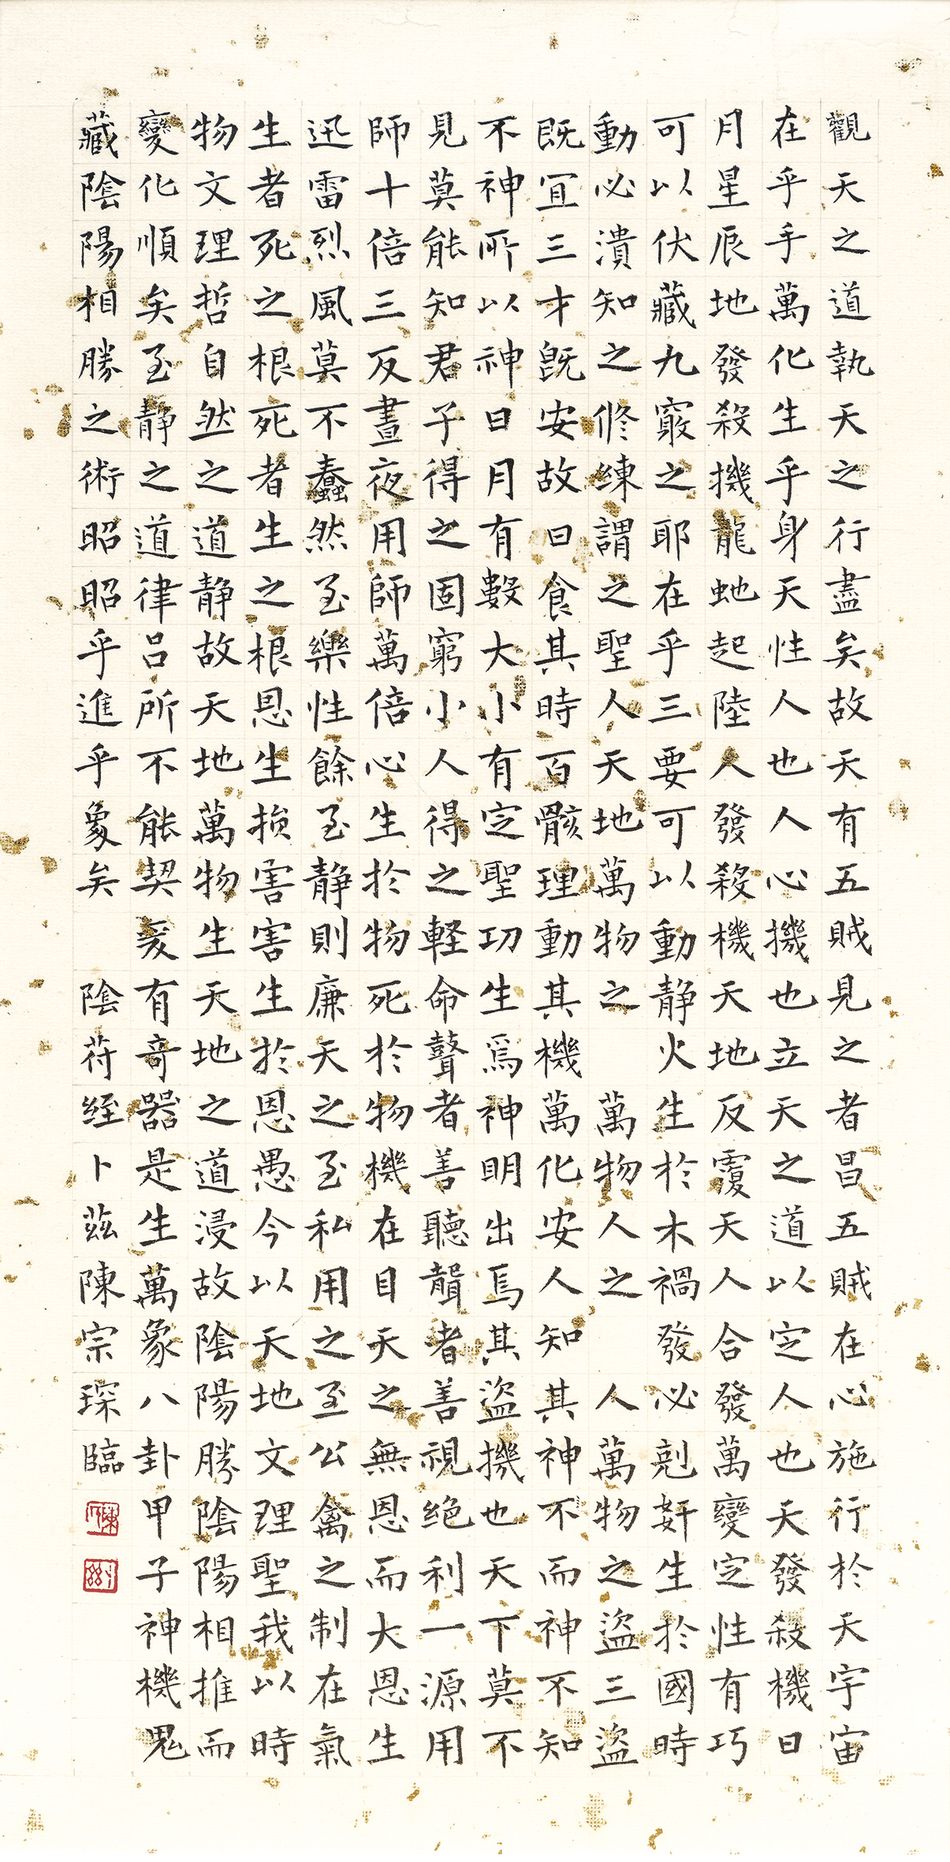 觀天之道執天之行盡矣故天有五賊見之者昌五賊在心施行於天宇宙
在乎手萬化生乎身天性人也人心機也立天之道以定人也天發殺機日
月星辰地發殺機龍虵起陸人發殺機天地反覆天人合發萬變定性有巧
可以伏藏九竅之耶在乎三要可以動静火生於木禍 發必剋奸生於國時
動必潰知之修練謂之聖人天地萬物之 萬物人之 人萬物之盜三盜
既宜三才既安故曰食其時百骸理動其機萬化安人知其神不而神不知
不神所以神日月有數大小有定聖功生焉神明出焉其盜機也天下莫不
見莫能知君子得之固窮小人得之軽命瞽者善聽聾者善視绝利一源用
師十倍三反晝夜用師萬倍心生於物死於物機在目天之無恩而大恩生
迅雷烈風莫不蠢然至樂性餘至静則廉天之至私用之至公禽之制在氣
生者死之根死者生之根恩生损害害生於恩愚今以天地文理聖我以時
物文理哲自然之道静故天地萬物生天地之道浸故陰陽勝陰陽相推而
變化順矣至静之道律呂所不能契爰有奇器是生萬象八卦甲子神機鬼
藏陰陽相勝之術昭昭乎進乎象矣 陰苻経卜茲陳宗琛臨